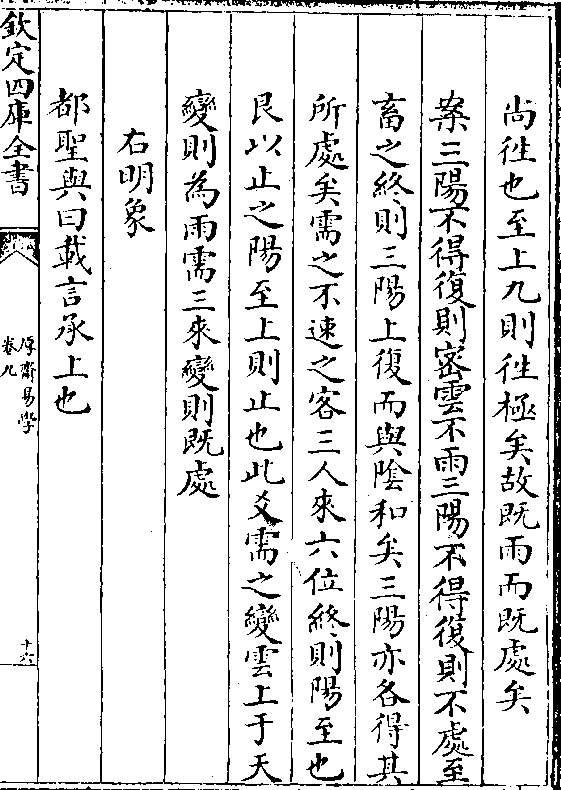 尚徃也至上九則徃極矣故既雨而既處矣
案三陽不得復則密雲不雨三陽不得復則不處至
畜之終則三陽上復而與陰和矣三陽亦各得其
所處矣需之不速之客三人來六位終則陽至也
艮以止之陽至上則止也此爻需之變雲上于天
變則為雨需三來變則既處
右明象
都聖與曰載言承上也
欽定四庫全書
厚齋易學
卷九
十六